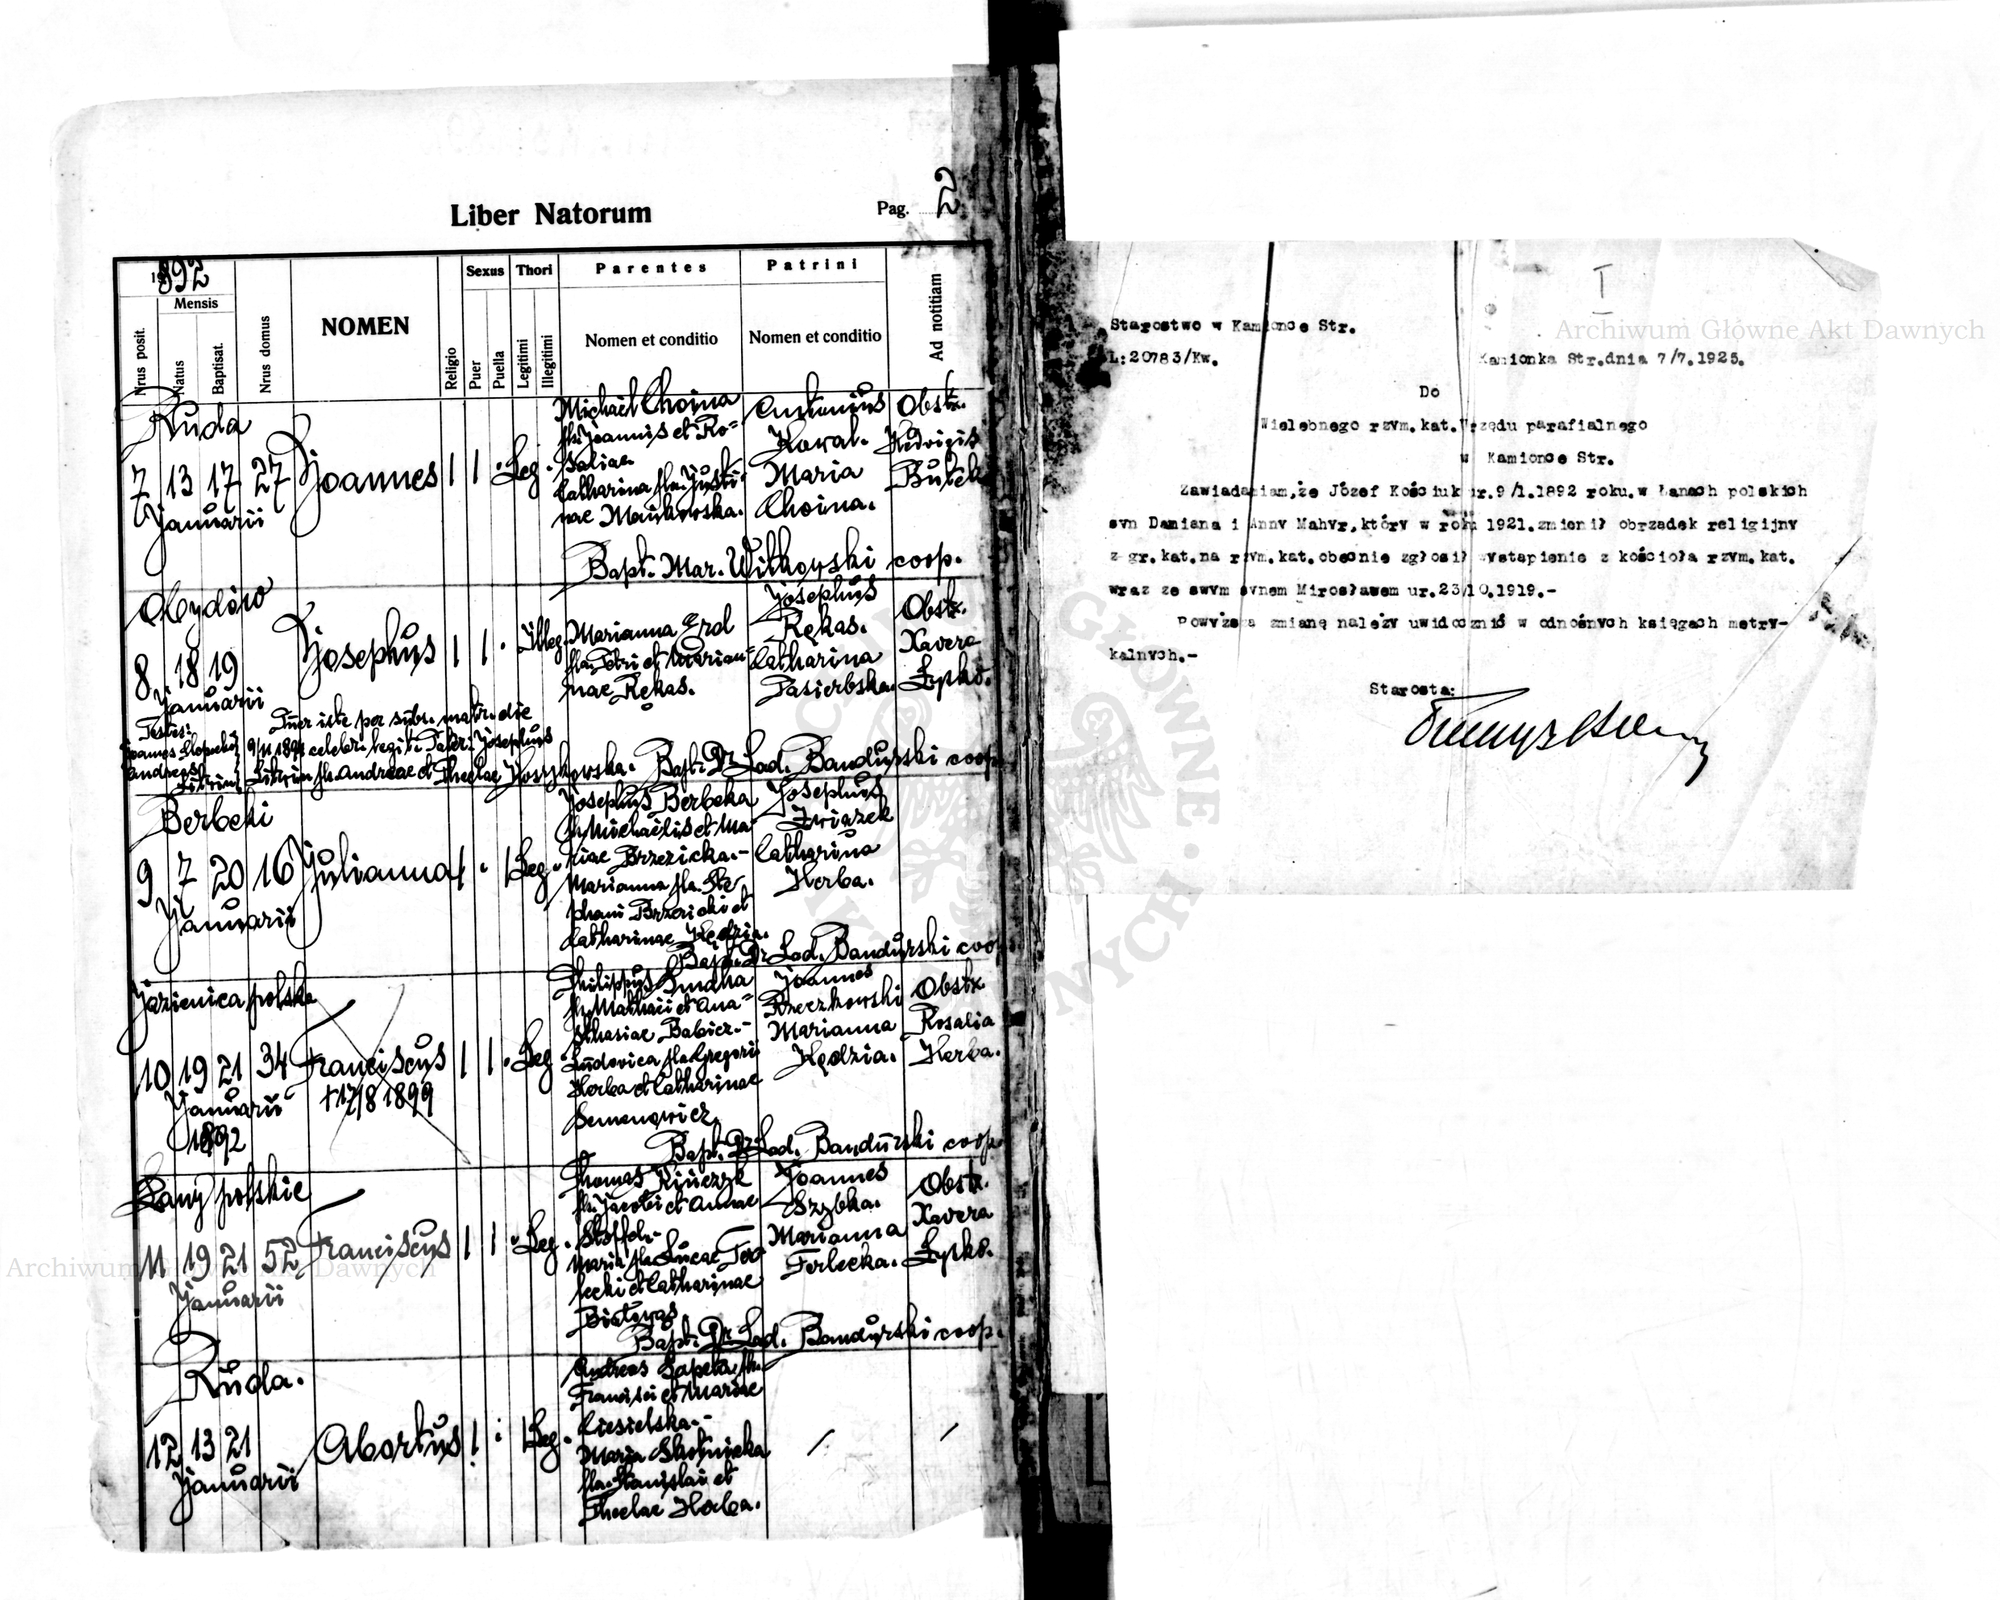 Liber Natorum
Pag. 22
1892
Nrus posit.
Mensis
Natus
Baptisat.
Nrus domus
NOMEN
Religio
Sexus
Puer
Puella
Thori
Legitimi
Illegitimi
Parentes
Nomen et conditio
Patrini
Nomen et conditio
Ad notitiam
Ruda
7 13 17 27 Joannes 1 1 . Leg.
Januarii
Michael Choina
fil. Joannis et Ro=
saliae
Catharina fla. Justi-
nae Mankowska.
Antonius
Kowal.
Maria
Choina.
Obstx.
Hedvigis
Butek
Bapt. Mar. Witkowski coop.
Obydów
8 18 19 Josephus 1 1 . Illeg.
Januarii
Marianna Erd
fla. Petri et Marian-
nae Rękas.
Josephus
Rękas.
Catharina
Pasierbska.
Obstx.
Xavera
Łysko.
Testes:
Puer iste per subs. matr. die
celebr. legit. Patri Josephus
Litwin fil. Andreae et Theclae
Bapt. Dr Lad. Bandurski coop.
Berbeki
9 7 20 16 Julianna 1 . 1 Leg.
Januarii
Josephus Berbeka
fil. Michaelis et Ma-
riae Brzezicka.-
Marianna fla. Ste-
phani Brzezicki et
Catharinae Kędzia.
Josephus
Związek
Catharina
Herba.
Bapt. Dr Lad. Bandurski coop.
Jazienica polska
10 19 21 34 Franciscus 1 1 . Leg.
Januarii
1892
+17/8 1899
Philippus Hundha
fil. Mathaei et Ana=
sthasiae Babicz.-
Ludovica fla. Gregorii
Herba et Catharinae
Semenowicz
Joannes
Brzeczkowski
Marianna
Kędzia.
Obstx
Rosalia
Herba.
Bapt. Dr Lad. Bandurski coop.
Łany polskie
11 19 21 52 Franciscus 1 1 . Leg.
Januarii
Thomas Kinczyk
fil. Jacobi et Annae
Stoffel.-
Maria fla. Lucae Ter-
lecki et Catharinae
Białowąs
Joannes
Szybka.
Marianna
Terlecka.
Obstx.
Xavera
Łysko.
Bapt. Dr Lad. Bandurski coop.
Ruda.
12 13 21 Abortus 1 . 1 Leg.
Januarii
Andreas Sapeta fil.
Francisci et Mariae
Ciesielska.-
Maria Skotnicka
fla. Stanislai et
Theclae Herba.
I
Starostwo w Kamionce Str.
L:20783/Kw.
Kamionka Str.dnia 7/7.1925.
Do
Wielebnego rzym.kat.Urzędu parafialnego
w Kamionce Str.
Zawiadamiam,że Józef Kościuk ur.9/1.1892 roku.w Łanach polskich
syn Damiana i Anny Mahyr,który w roku 1921.zmienił obrządek religijny
z gr.kat.na rzym.kat.obecnie zgłosił wystąpienie z kościoła rzym.kat.
wraz ze swym synem Mirosławem ur.23/10.1919.-
Powyższą zmianę należy uwidocznić w odnośnych księgach metry-
kalnych.-
Starosta:
Archiwum Główne Akt Dawnych
Archiwum Główne Akt Dawnych